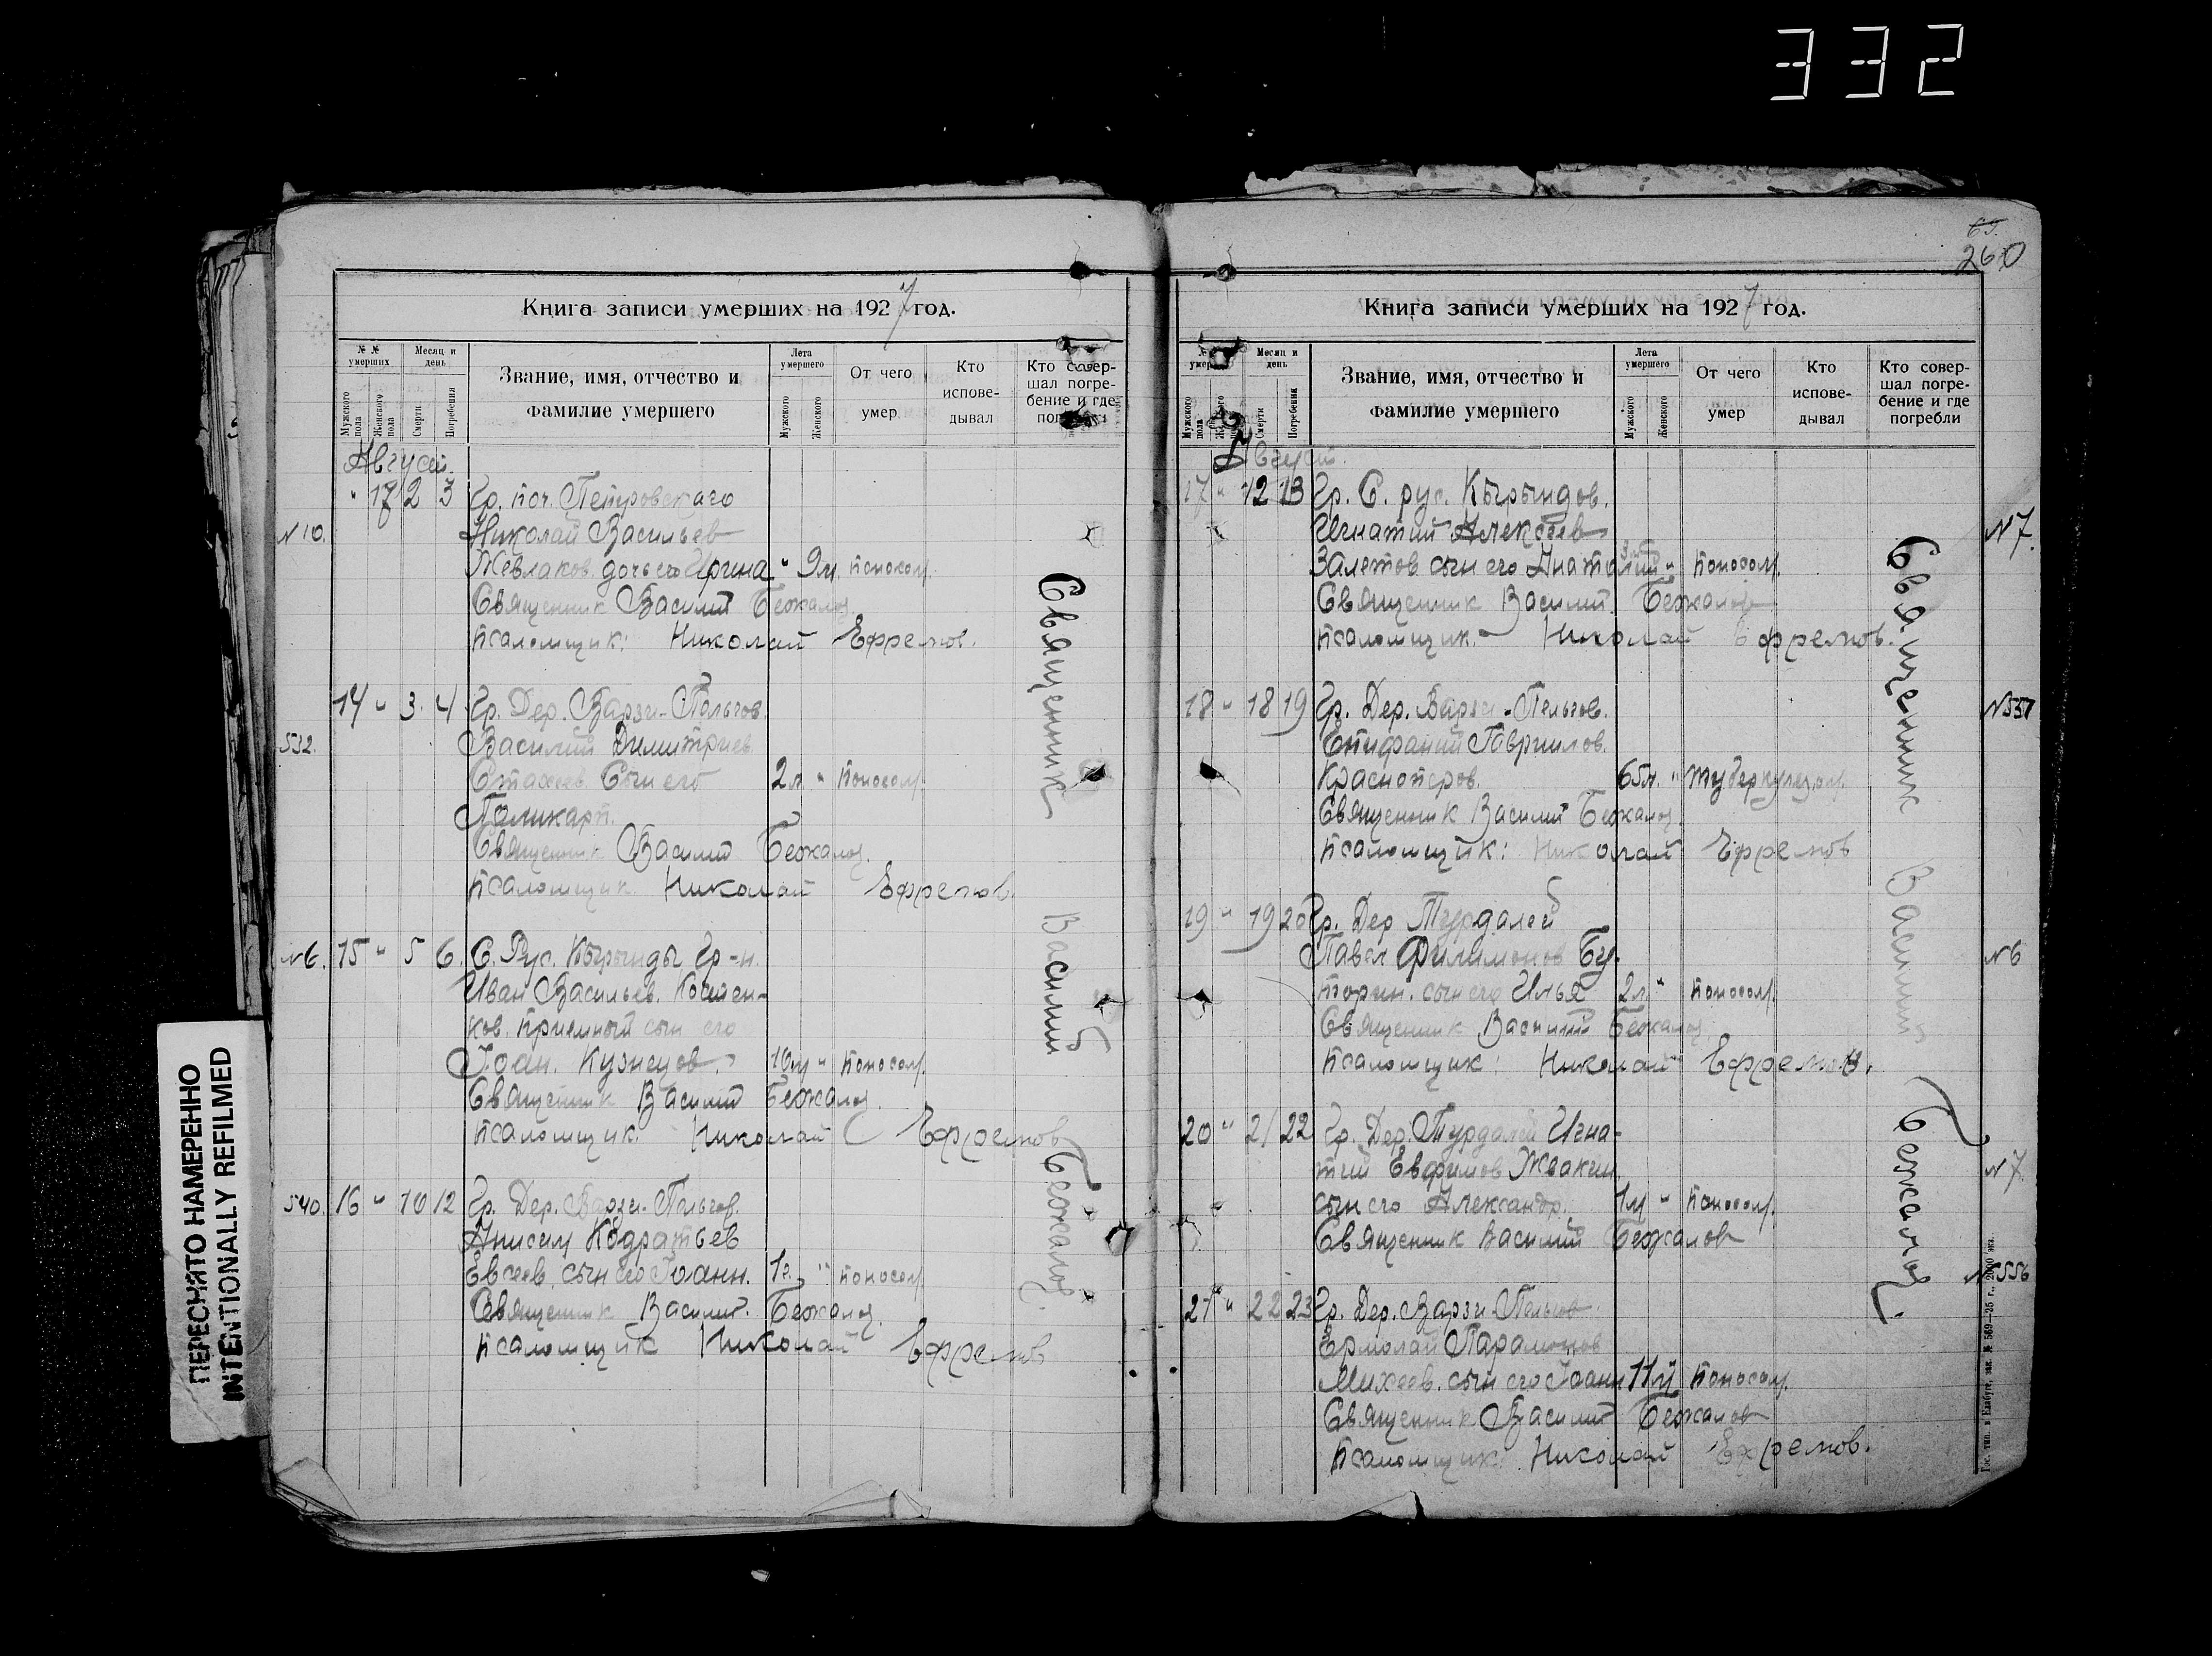 332
65.
260
ПЕРЕСНЯТО НАМЕРЕННО
INTENTIONALLY REFILMED
Книга записи умерших на 1927 год.
№ № умерших
Мужского пола
Женского пола
Месяц и день
Смерти
Погребения
Звание, имя, отчество и фамилие умершего
Лета умершего
Мужского
Женского
От чего умер
Кто исповедывал
Кто совершал погребение и где погребли
Август.
" 17 2 3 Гр. поч. Петровскаго
N 10. Николай Васильев
Жевлаков. дочь его Ирина " 9м. поносом.
Священник Василий Бежалов.
псаломщик: Николай Ефремов.
14 " 3. 4 Гр. Дер. Варзи-Пельгов.
532. Василий Димитриев
Стахеев Сын его 2 л. " поносом.
Поликарп.
Священник Василий Бежалов.
псаломщик. Николай Ефремов.
N 6. 15 " 5 6. С. Рус. Кырынды Гр-н.
Иван Васильев.
ков. приемный сын его
Иоан. Кузнецов. 10м " поносом.
Священник Василий Бежалов.
псаломщик. Николай Ефремов
540. 16 " 10 12 Гр. Дер. Варзи-Пельгов.
Анисим Кодратьев
Евсеев, сын его Иоанн. 1 г. " поносом
Священник Василий. Бежалов.
псаломщик Николай Ефремов
Священник Василий Бежалов.
Книга записи умерших на 1927 год.
№ умер
Мужского пола
Месяц и день
Смерти
Погребения
Звание, имя, отчество и фамилие умершего
Лета умершего
Мужского
Женского
От чего умер
Кто исповедывал
Кто совершал погребение и где погребли
Август.
17 " 12 13 Гр. С. рус. Кырындов.
Игнатий Алексеев N 7.
Залетов сын его Анатолий " поносом.
Священник Василий Бежалов
псаломщик. Николай Ефремов.
18 " 18 19 Гр. Дер. Варзи-Пельгов. N 557
Епифаний Гавриилов.
Красноперов. 65л. " туберкулезом.
Священник Василий Бежалов.
псаломщик: Николай Ефремов
19 " 19 20 Гр. Дер Турдалей
Павел Филимонов Бу- N 6
торин. сын его Илья 2 л " поносом.
Священник Василий Бежалов
псаломщик: Николай Ефремов.
20 " 21 22 Гр. Дер. Турдалей Игна-
тий Евфимов Жвакин N 7
сын его Александр. 1м " поносом.
Священник Василий Бежалов
N 556
21 " 22 23 Гр. Дер. Варзи-Пельгов
Ермолай Парамонов
Михеев. сын его Иоанн 11 м поносом.
Священник Василий Бежалов
псаломщик: Николай Ефремов.
Священник Василий Бежалов.
Гос. тип. в Елабуге, зак. № 569—25 г., 2000 экз.